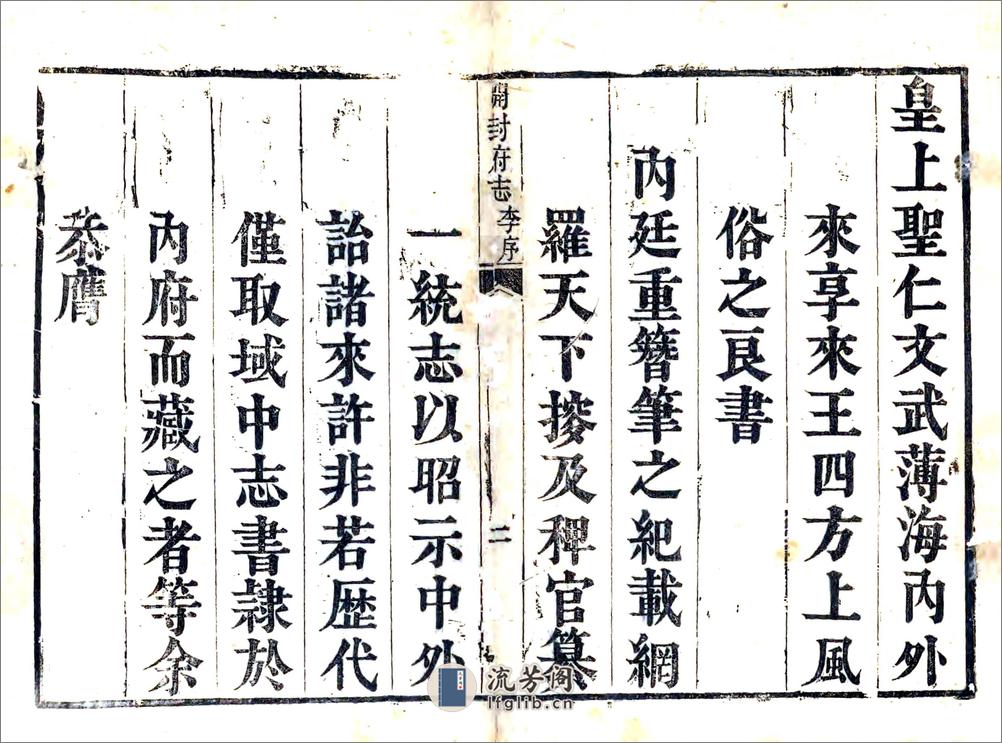 皇上聖仁文武薄海內外
來享來王四方上風
俗之良書
內廷重簪筆之紀載網
羅天下搜及稗官纂
開封府志
李序
二
一統志以昭示中外
詒諸來許非若歴代
僅取域中志書隷於
內府而藏之者等余
忝膺
流芳阁
lfglib.cn